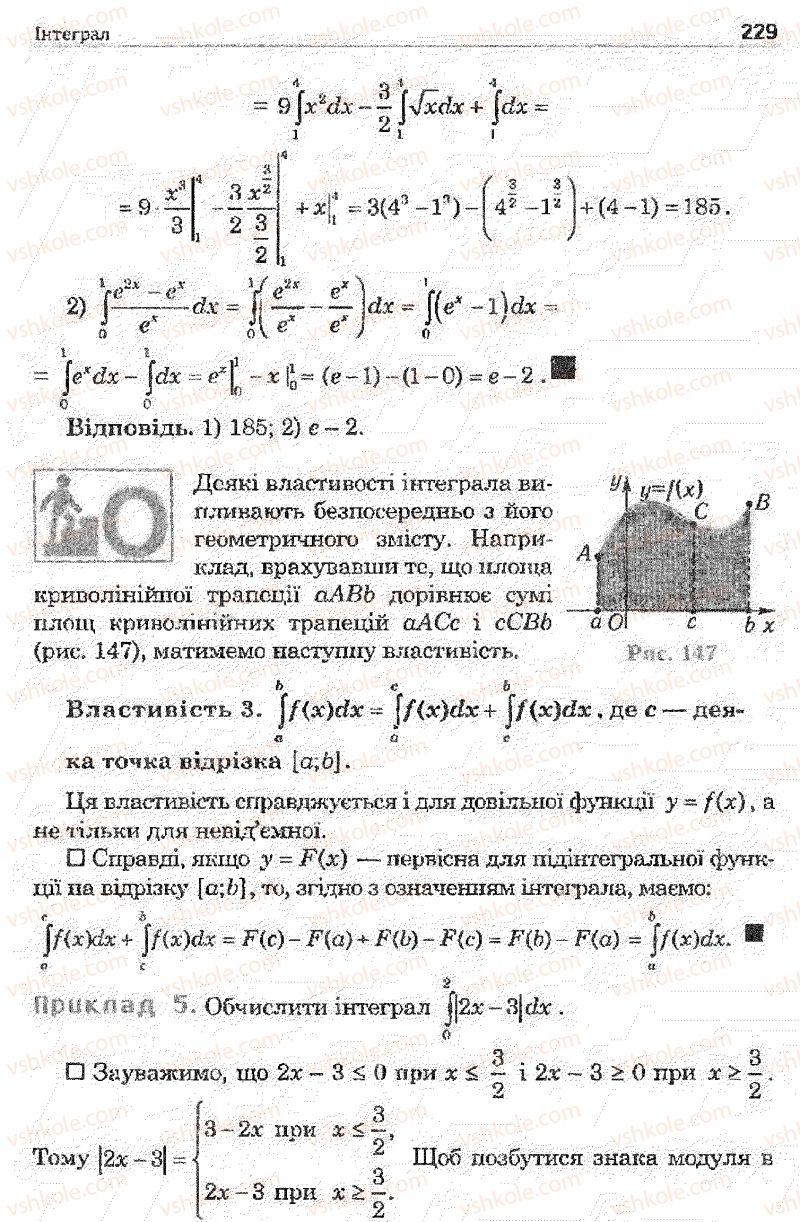 Інтеграл 229
= 9∫₁⁴x²dx − 3/2 ∫₁⁴√xdx + ∫₁⁴dx =
= 9·x³/3 |₁⁴ − 3/2 · x^(3/2)/(3/2) |₁⁴ + x|₁⁴ = 3(4³ − 1³) − (4^(3/2) − 1^(3/2)) + (4 − 1) = 185.
2) ∫₀¹ (e²ˣ − eˣ)/eˣ dx = ∫₀¹(e²ˣ/eˣ − eˣ/eˣ)dx = ∫₀¹(eˣ − 1)dx =
= ∫₀¹eˣdx − ∫₀¹dx = eˣ|₀¹ − x|₀¹ = (e − 1) − (1 − 0) = e − 2. ■
Відповідь. 1) 185; 2) e − 2.
Деякі властивості інтеграла ви-
пливають безпосередньо з його
геометричного змісту. Напри-
клад, врахувавши те, що площа
криволінійної трапеції aABb дорівнює сумі
площ криволінійних трапецій aACc і cCBb
(рис. 147), матимемо наступну властивість.
y y=f(x)
C B
A
a O c b x
Рис. 147
Властивість 3. ∫ₐᵇf(x)dx = ∫ₐᶜf(x)dx + ∫꜀ᵇf(x)dx, де c — дея-
ка точка відрізка [a;b].
Ця властивість справджується і для довільної функції y = f(x), а
не тільки для невід'ємної.
□ Справді, якщо y = F(x) — первісна для підінтегральної функ-
ції на відрізку [a;b], то, згідно з означенням інтеграла, маємо:
∫ₐᶜf(x)dx + ∫꜀ᵇf(x)dx = F(c) − F(a) + F(b) − F(c) = F(b) − F(a) = ∫ₐᵇf(x)dx. ■
Приклад 5. Обчислити інтеграл ∫₀²|2x − 3|dx.
□ Зауважимо, що 2x − 3 ≤ 0 при x ≤ 3/2 і 2x − 3 ≥ 0 при x ≥ 3/2.
Тому |2x − 3| = { 3 − 2x при x ≤ 3/2, 2x − 3 при x ≥ 3/2. Щоб позбутися знака модуля в